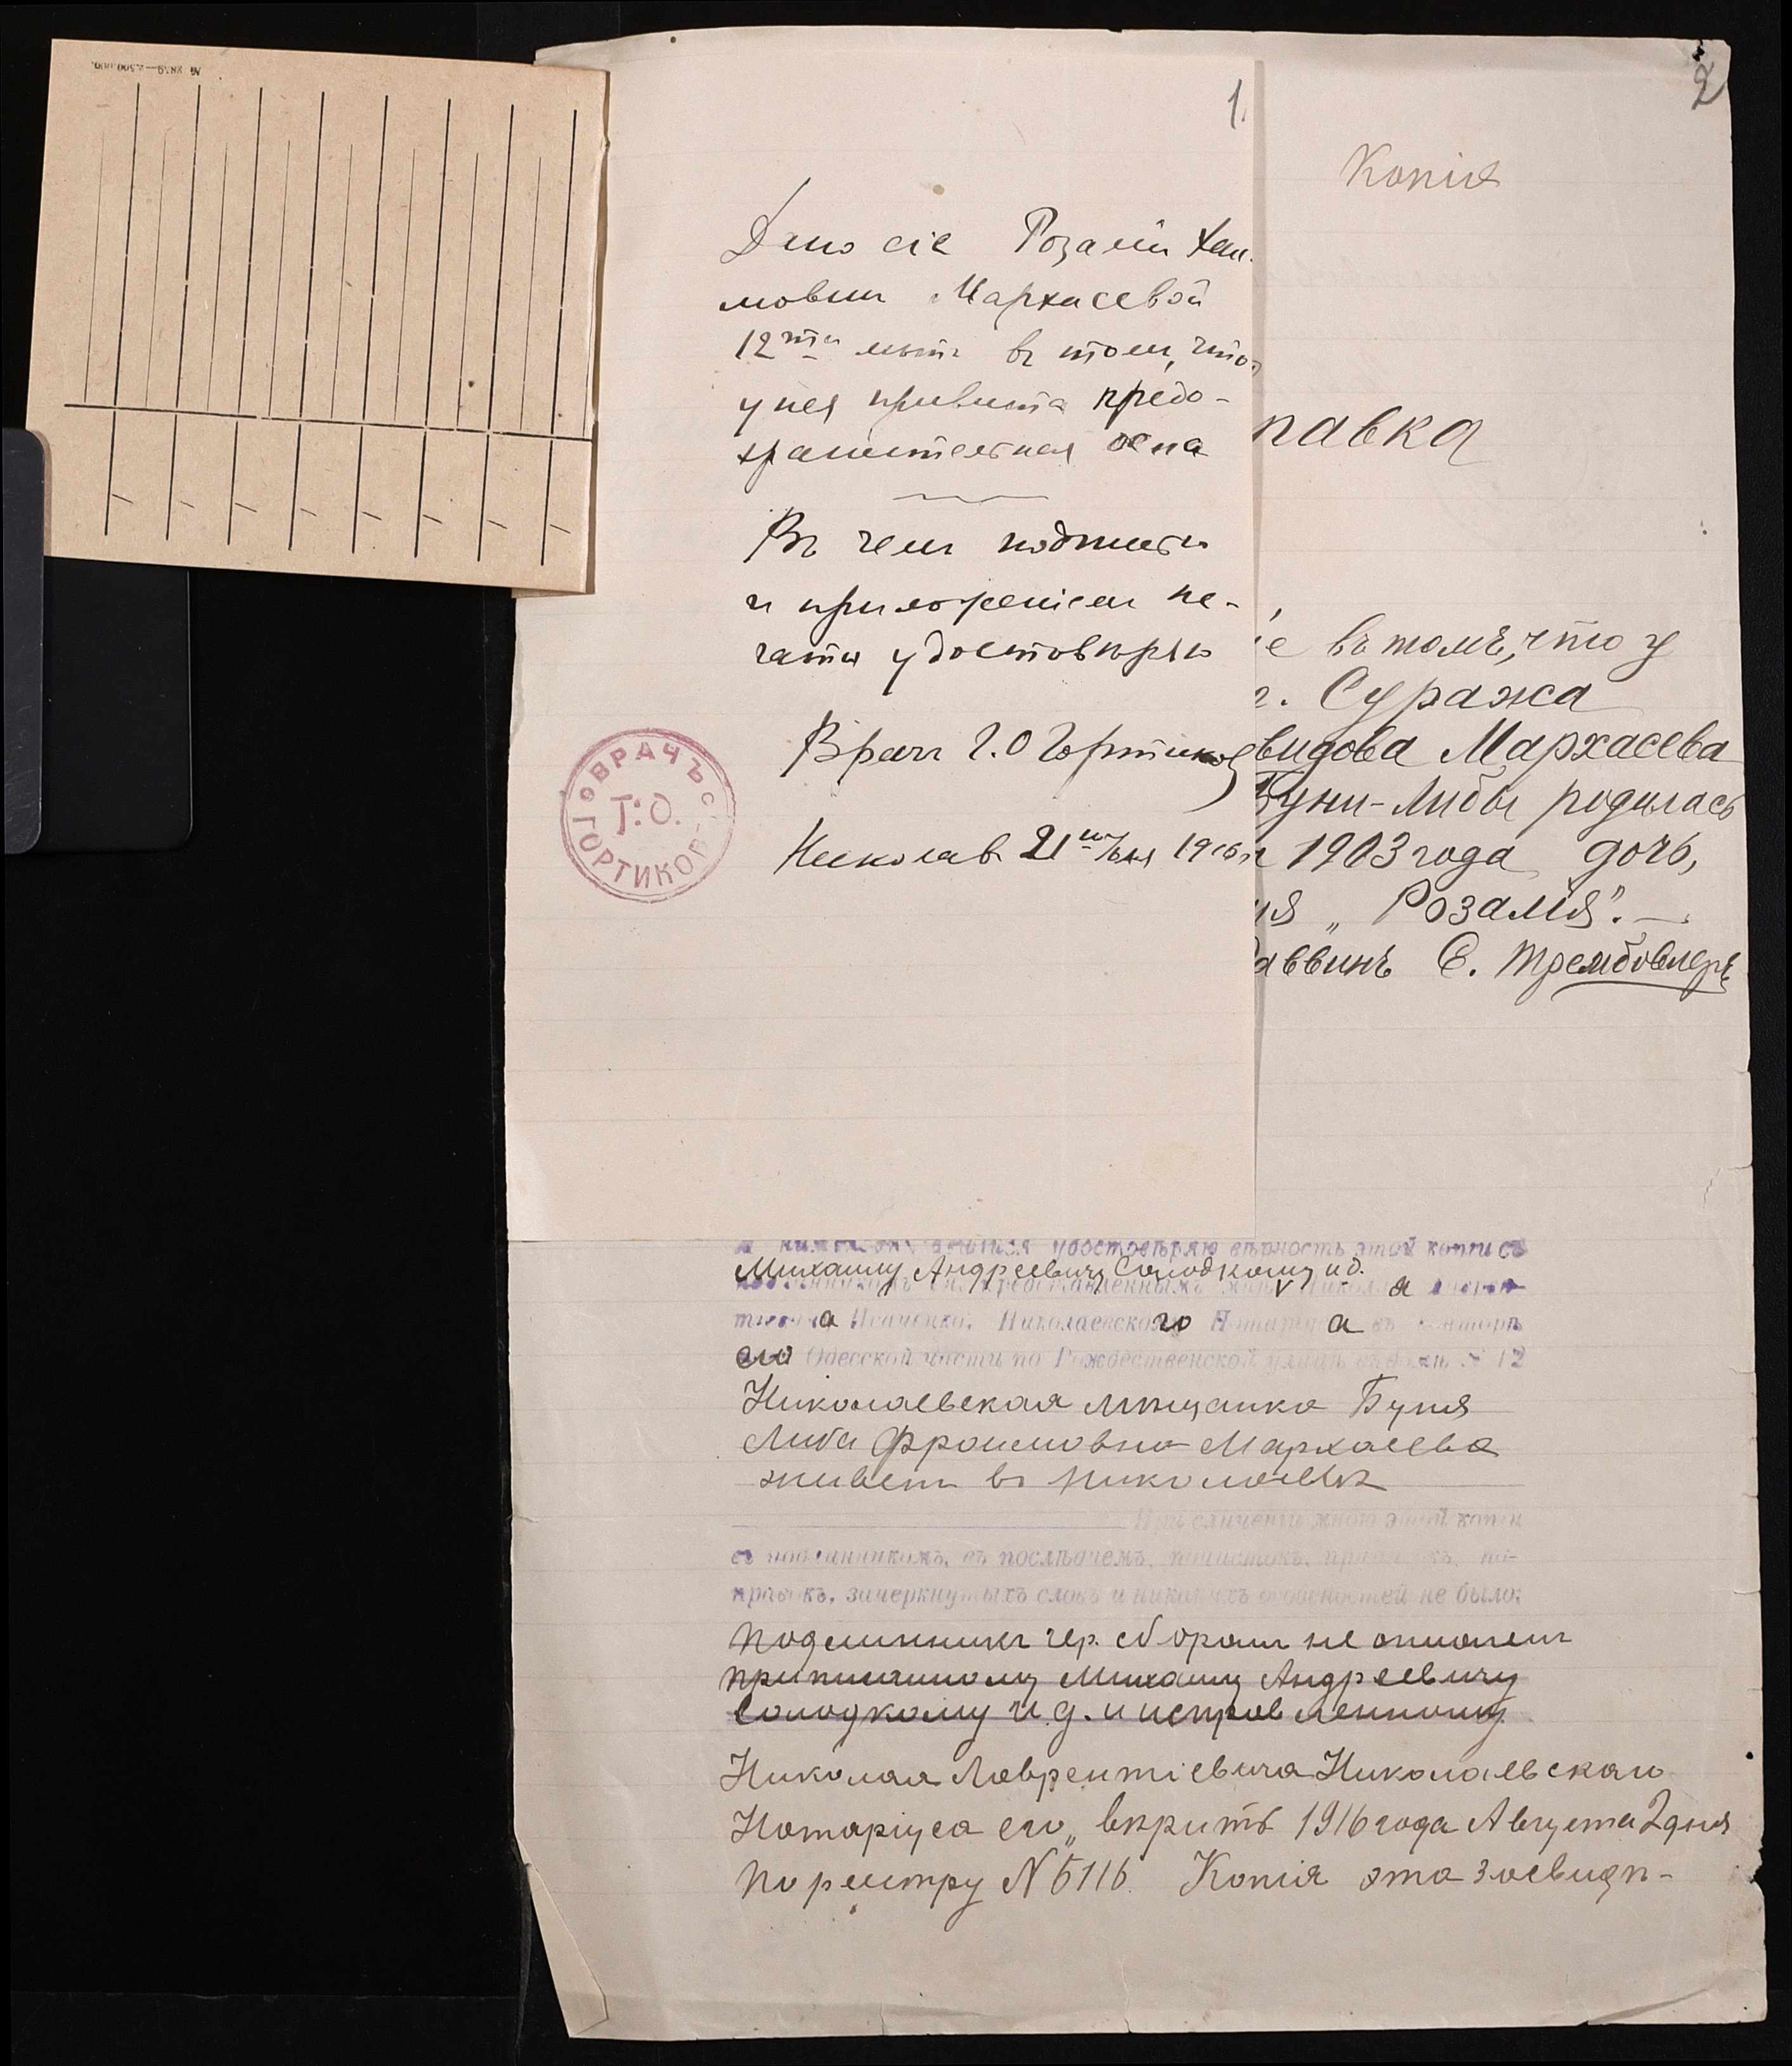 1.
Дано сіе Розаліи Хаи-
мовны Мархасевой
12ти лѣтъ въ томъ, что
у нея привита предо-
хранительная оспа
Въ чемъ подписью
и приложеніемъ пе-
чати удостовѣряю
Врачъ Г.О Гортиковъ
Николаев 21го 1916
ВРАЧЪ
Г.О.
ГОРТИКОВ
2
Копія
павка
іе въ томъ, что у
г. Суража
видова Мархасева
Буни-Либы родилась
1903 года дочь,
ия „Розалія".
аввинъ С. Трембовлеръ
удостовѣряю вѣрность этой копіи съ
Михаилу Андреевичу Солодкому и д.
а
а Николаевскаго а въ конторѣ
его Одесской части по Рождественской улицѣ № 12
Николаевская мѣщанка Буня
Либа Фроимовна Мархасева
живетъ въ Николаевѣ
При сличеніи мною этой копіи
съ подлинникомъ, въ послѣднемъ, почистокъ, приписокъ, по-
правокъ, зачеркнутыхъ словъ и никакихъ особенностей не было;
подлинникъ гер. сборомъ не оплаченъ
приписанному Михаилу Андреевичу
Солодкому и д. и исправленному
Николая Лаврентіевича Николаевскаго
Нотаріуса его„ вѣрить 1916 года Августа 2 дня
По реестру N 5116. Копія эта засвидѣ-